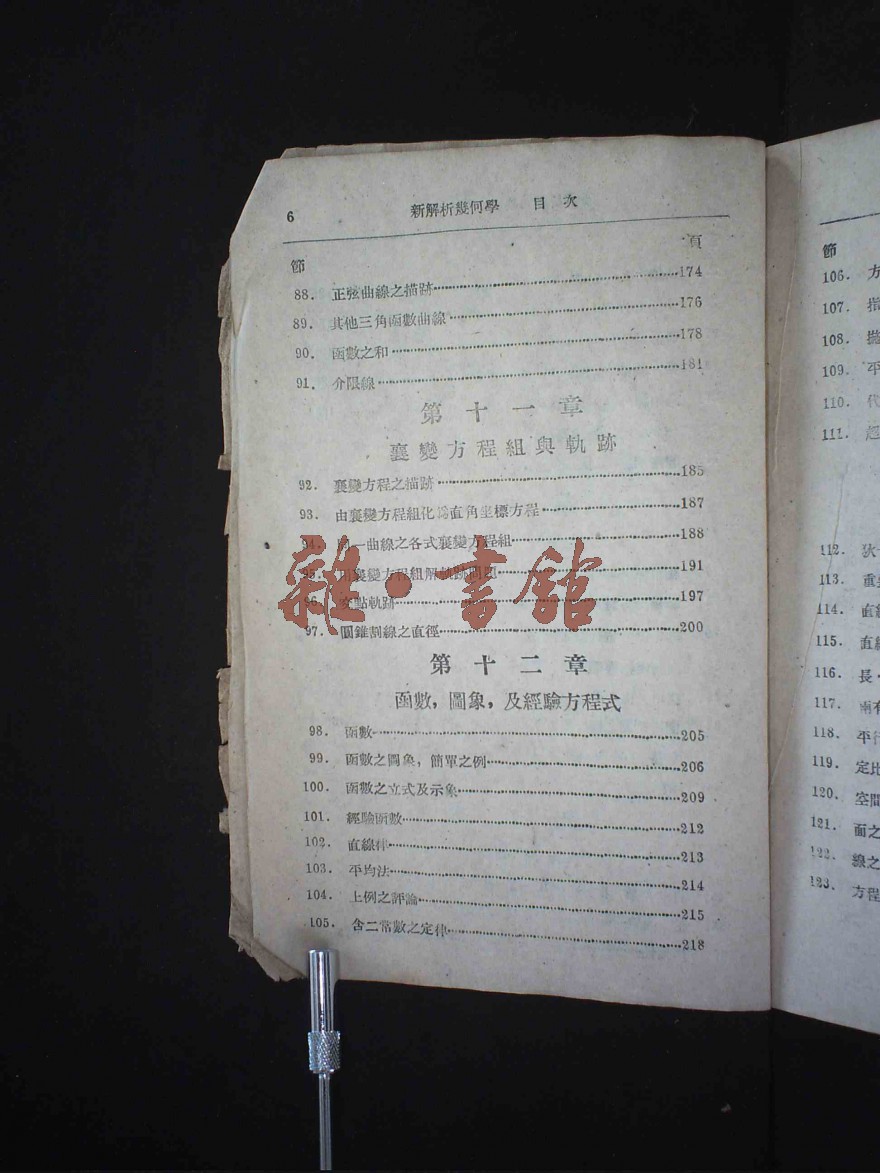 6 新解析幾何學 目次
節 頁
88. 正弦曲線之描跡 174
89. 其他三角函數曲線 176
90. 函數之和 178
91. 介限線 181
第十一章
襄變方程組與軌跡
92. 襄變方程之描跡 185
93. 由襄變方程組化爲直角坐標方程 187
94. 同一曲線之各式襄變方程組 188
95. 用襄變方程組解軌跡問題 191
96. 交點軌跡 197
97. 圓錐割線之直徑 200
第十二章
函數，圖象，及經驗方程式
98. 函數 205
99. 函數之圖象，簡單之例 206
100. 函數之立式及示象 209
101. 經驗函數 212
102. 直線律 213
103. 平均法 214
104. 上例之評論 215
105. 含二常數之定律 218
雜·書館
節
106. 方
107. 指
108. 拋
109. 平
110. 代
111. 超
112. 狄
113. 重
114. 直線
115. 直線
116. 長
117. 兩有
118. 平行
119. 定比
120. 空間
121. 面之
122. 線之
123. 方程